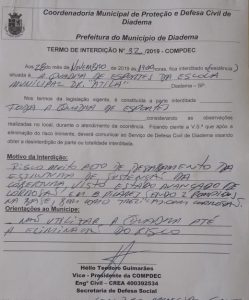 Coordenadoria Municipal de Proteção e Defesa Civil de
Diadema
Prefeitura do Município de Diadema
TERMO DE INTERDIÇÃO Nº 32 /2019 - COMPDEC
Aos 28 do mês NOVEMBRO de 2019 às fica interditado a(residência)
situada à, A QUADRA DE ESPORTES DA ESCOLA
MUNICIPAL DR. "ATILA" Diadema – SP
Nos termos da legislação vigente é constituída a parte interditada
TODA A QUADRA DE ESPORTES
considerando as observações
realizadas no local, durante o atendimento da ocorrência. Ficando ciente a V.Sª que após a
eliminação do risco iminente, deverá comunicar ao Serviço de Defesa Civil de Diadema visando obter
a desinterdição de parte ou totalidade interditada.
Motivo da Interdição:
RISCO MUITO ALTO DE DESABAMENTO DA
ESTRUTURA DE SUSTENTAÇÃO DA
COBERTURA VISTO ESTADO AVANÇADO DE
CORROSÃO
NA BASE, BEM COMO
Orientações ao Munícipe:
NÃO UTILIZAR A QUADRA ATÉ
A ELIMINAÇÃO DO RISCO
Hélio Teodoro Guimarães
Vice - Presidente da COMPDEC
Engº Civil – CREA 400392534
Secretaria de Defesa Social